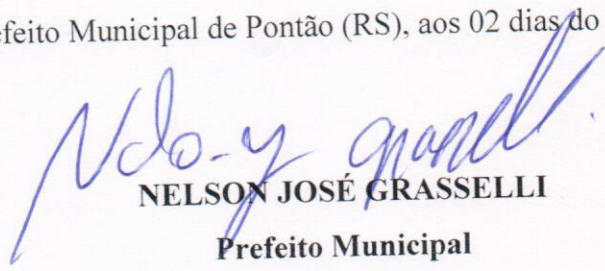 efeito Municipal de Pontão (RS), aos 02 dias do
NELSON JOSÉ GRASSELLI
Prefeito Municipal